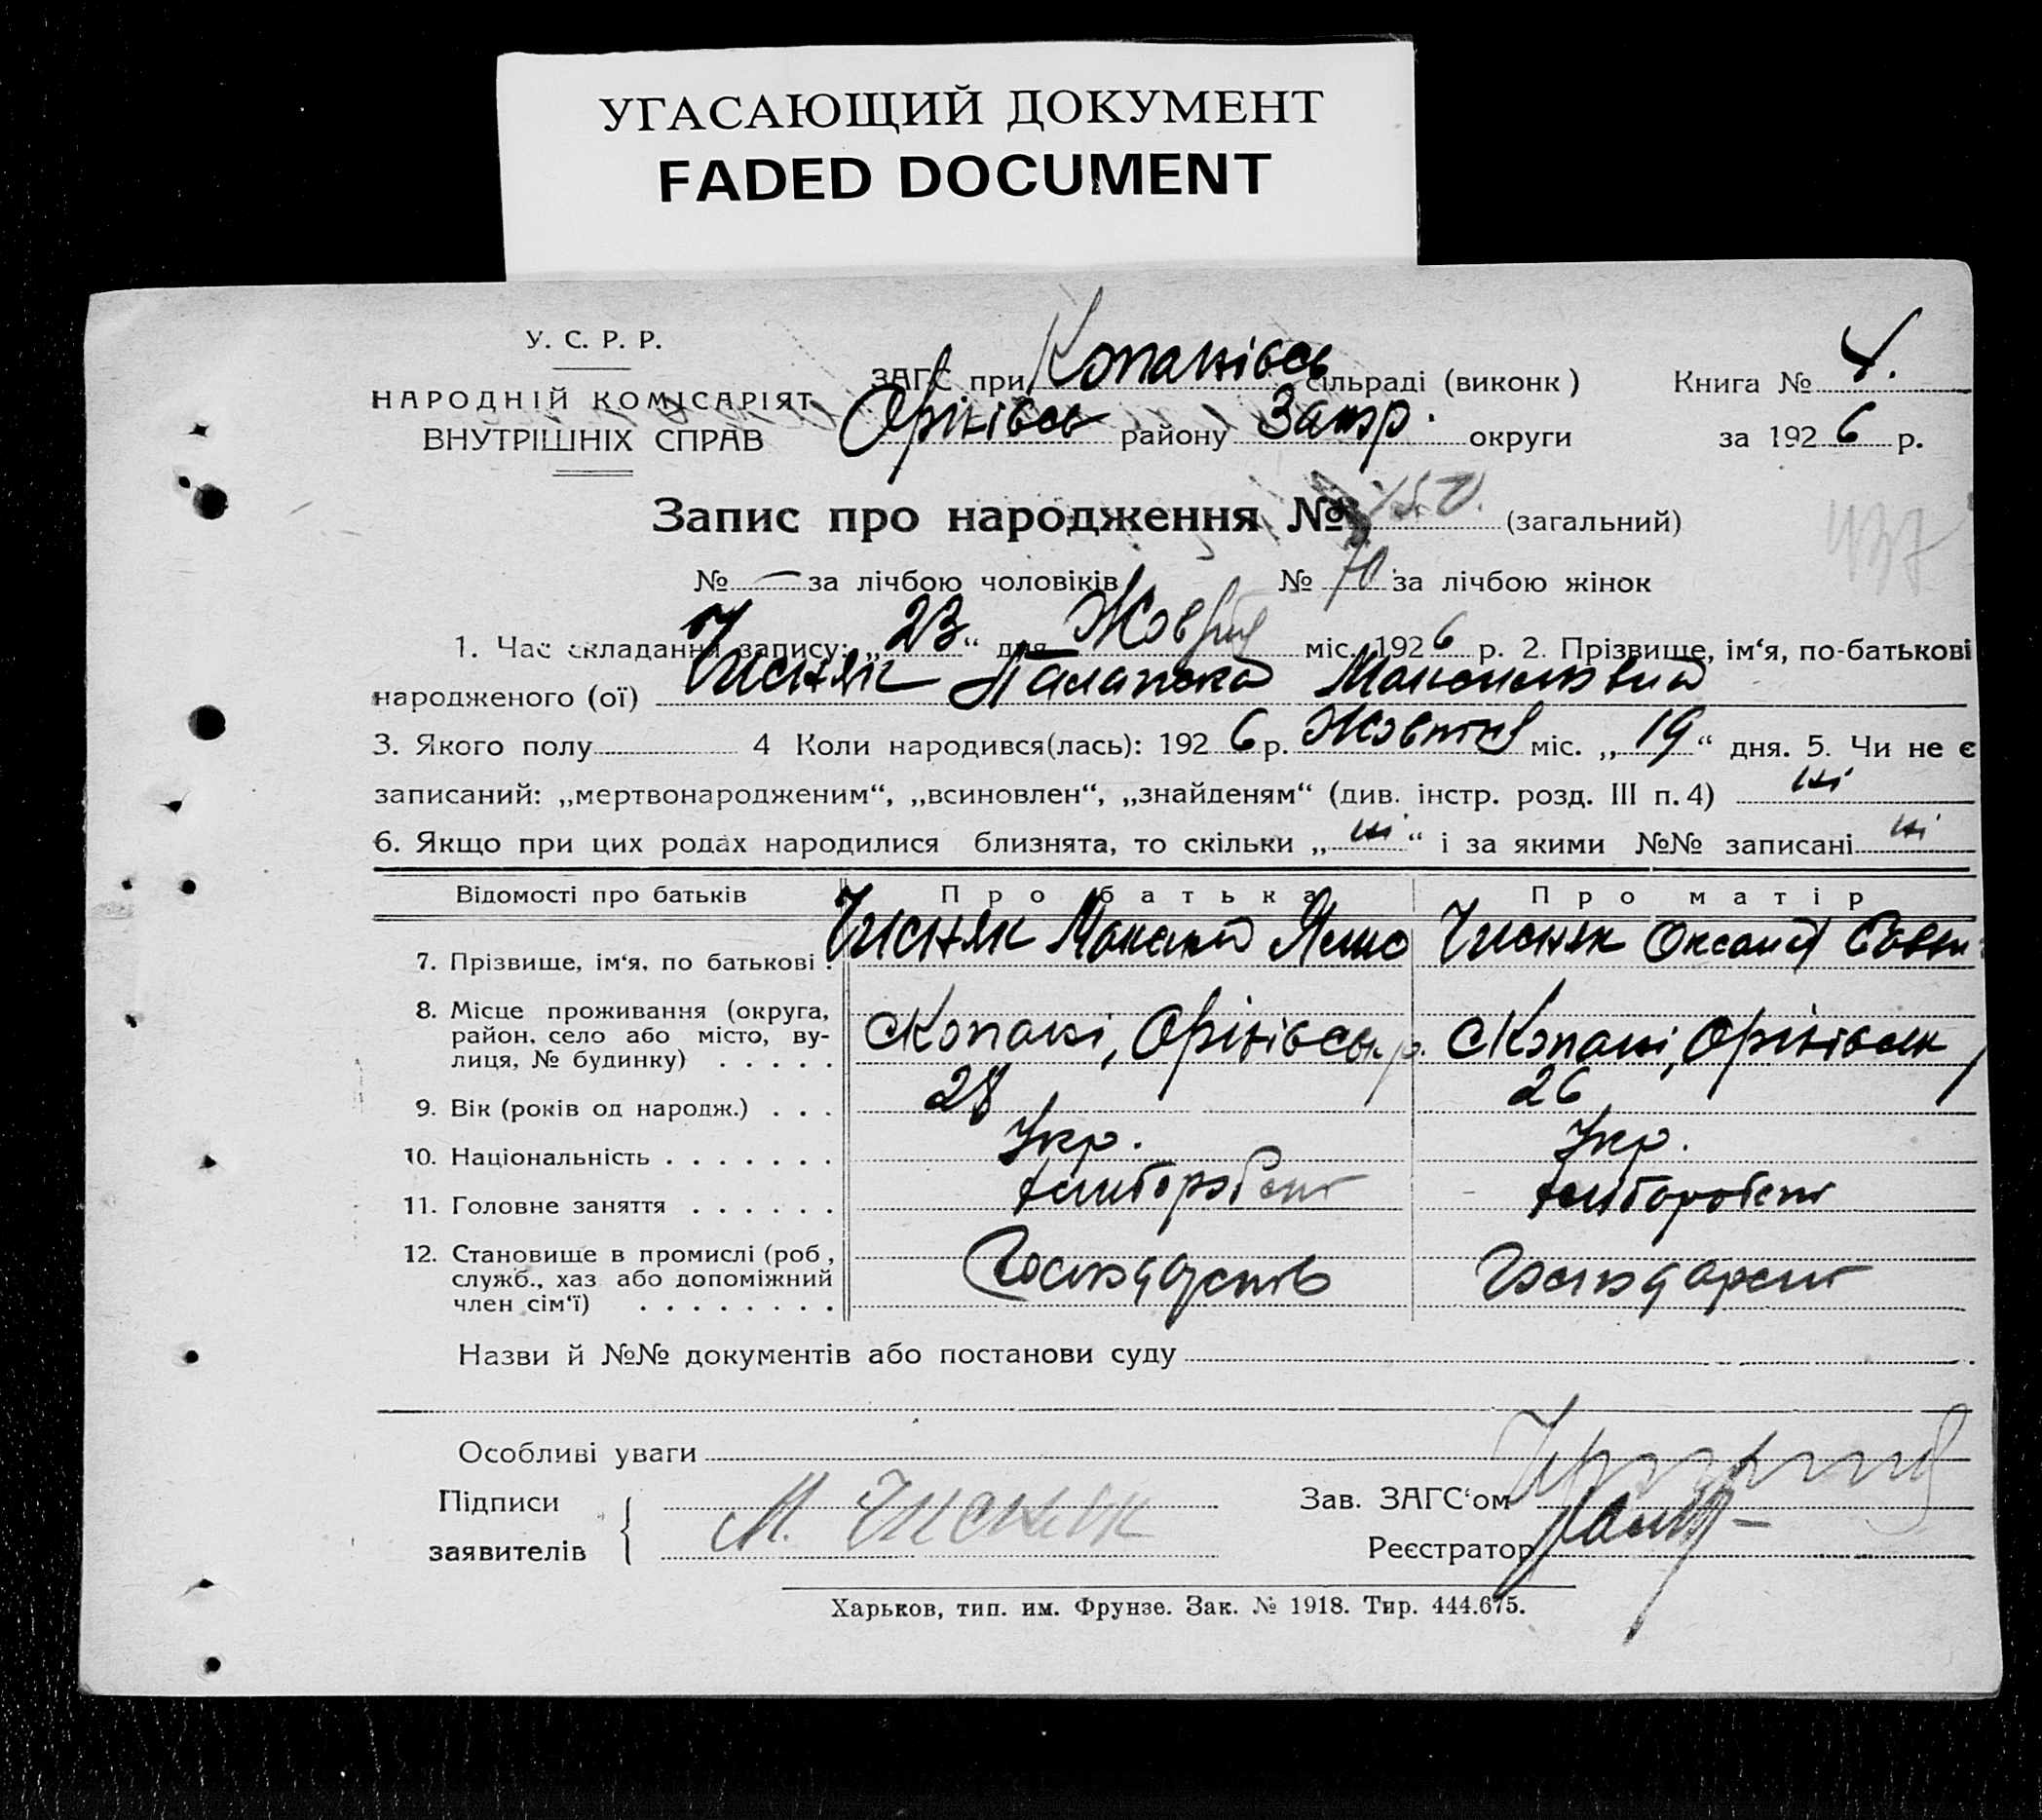 УГАСАЮЩИЙ ДОКУМЕНТ
FADED DOCUMENT
У. С. Р. Р.
НАРОДНІЙ КОМІСАРІЯТ
ВНУТРІШНІХ СПРАВ
ЗАГС при Копанівсь сільраді (виконк)
Книга № 4.
Оріхівсь району Запор. округи
за 1926 р.
Запис про народження № 150. (загальний)
437
№ — за лічбою чоловіків № 70 за лічбою жінок
1. Час складання запису: „23“ дня Жовтня міс. 1926 р. 2. Прізвище, ім‘я, по-батькові
народженого (ої) Чисняк Палажка Максимовна
3. Якого полу 4 Коли народився(лась): 1926 р. Жовтня міс. „19“ дня. 5. Чи не є
записаний: „мертвонародженим“, „всиновлен“, „знайденям“ (див. інстр. розд. III п. 4) ні
6. Якщо при цих родах народилися близнята, то скільки „ні“ і за якими №№ записані ні
Відомості про батьків Про батька Про матір
7. Прізвище, ім‘я, по батькові . Чисняк Максим Чисняк Оксана Савви
8. Місце проживання (округа,
район, село або місто, ву-
лиця, № будинку) . . . . . Копані, Оріхівськ. р. Копані, Оріхівськ р
9. Вік (років од народж.) . . . 28 26
10. Національність . . . . . . . Укр. Укр.
11. Головне заняття . . . . . . хлібороб хлібороб
12. Становище в промислі (роб,
служб., хаз або допоміжний
член сім‘ї) . . . . . . . .
Назви й №№ документів або постанови суду
Особливі уваги
Підписи
заявителів
М. Чисняк
Зав. ЗАГС‘ом
Реєстратор
Харьков, тип. им. Фрунзе. Зак. № 1918. Тир. 444.675.